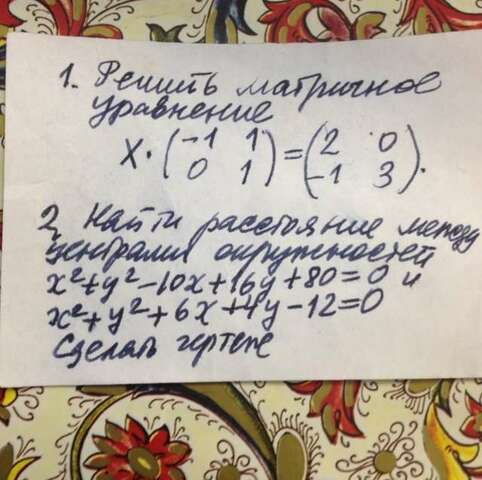 1. Решить матричное
уравнение
X · (-1 1) = (2 0)
(0 1) (-1 3).
2. Найти расстояние между
центрами окружностей
x²+y²-10x+16y+80=0 и
x²+y²+6x+4y-12=0
Сделать чертеж